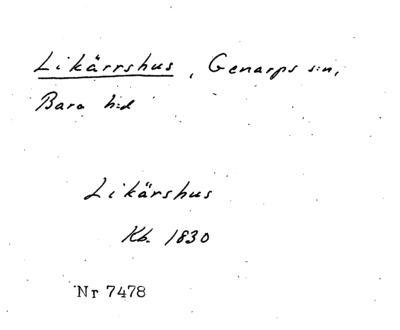 Likärrshus, Genarps s:n,
Bara h:d
Likärshus
Kb. 1830
Nr 7478